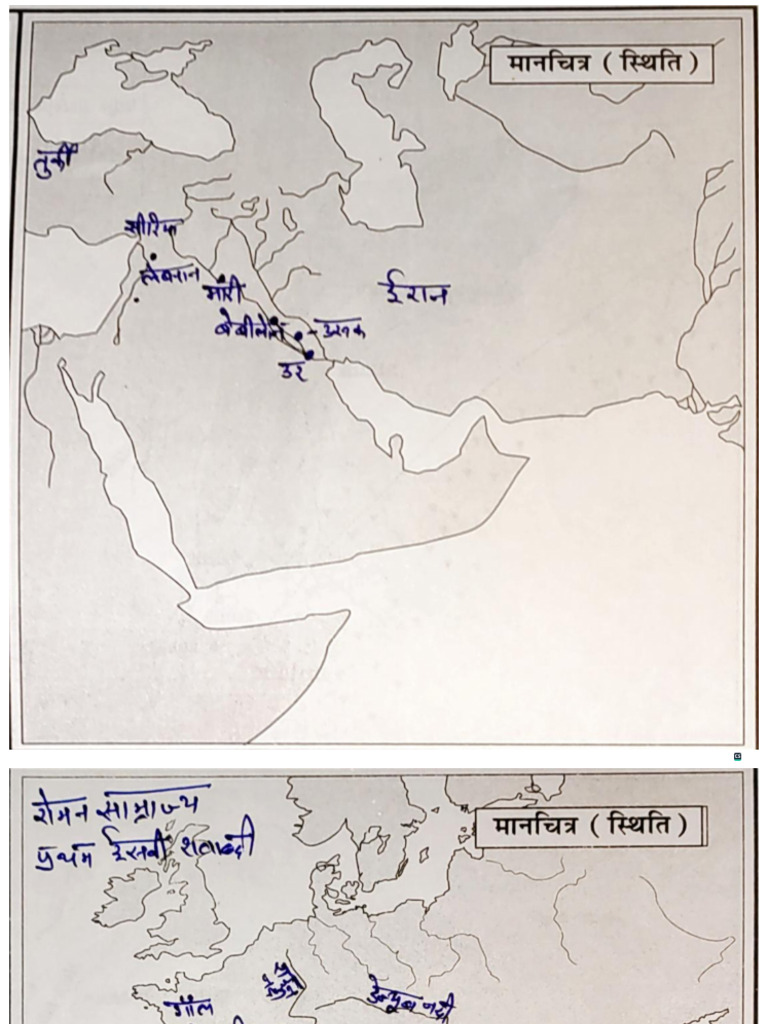 मानचित्र ( स्थिति )
तुर्की
सीरिया
लेबनान
मारी
ईरान
बेबीलोन
उरूक
उर
रोमन साम्राज्य
प्रथम ईसवी शताब्दी
मानचित्र ( स्थिति )
गॉल
डेन्यूब नदी